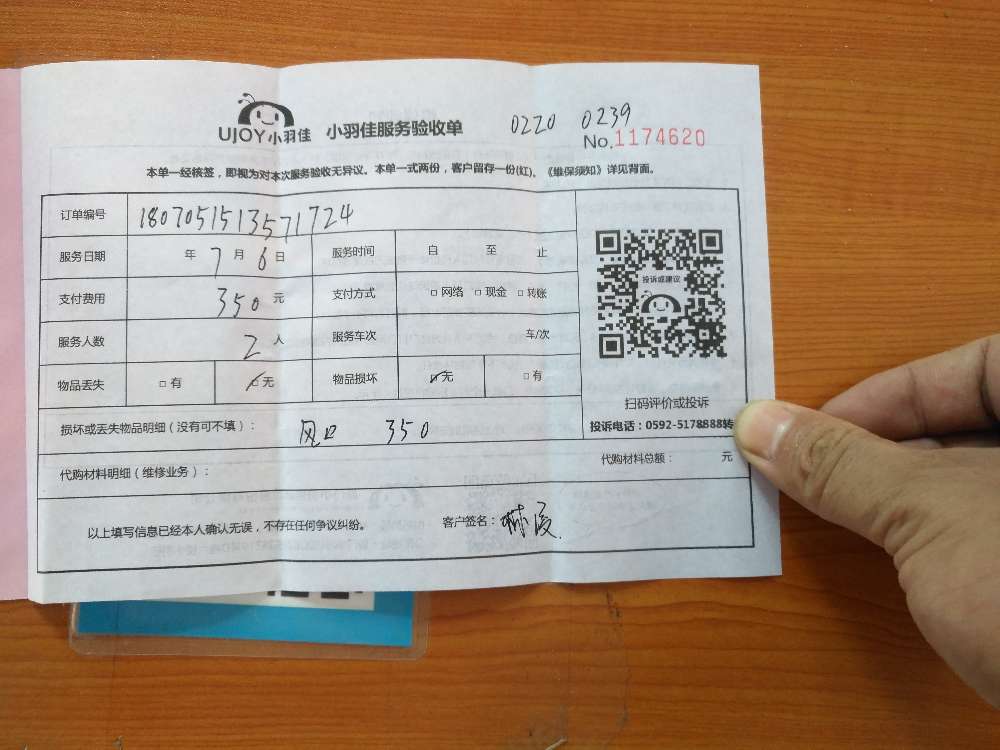 UJOY小羽佳 小羽佳服务验收单 0220 0239
No.1174620
本单一经核签，即视为对本次服务验收无异议。本单一式两份，客户留存一份(红)。《维保须知》详见背面。
订单编号 1807051513571724
服务日期 年 7 月 6 日 服务时间 自 至 止
投诉或建议
支付费用 350 元 支付方式 □ 网络 □ 现金 □ 转账
服务人数 2 人 服务车次 车/次
物品丢失 □ 有 ☑ 无 物品损坏 ☑ 无 □ 有
扫码评价或投诉
损坏或丢失物品明细（没有可不填）： 风口 350 投诉电话：0592-5178888转
代购材料明细（维修业务）： 代购材料总额： 元
以上填写信息已经本人确认无误，不存在任何争议纠纷。 客户签名：